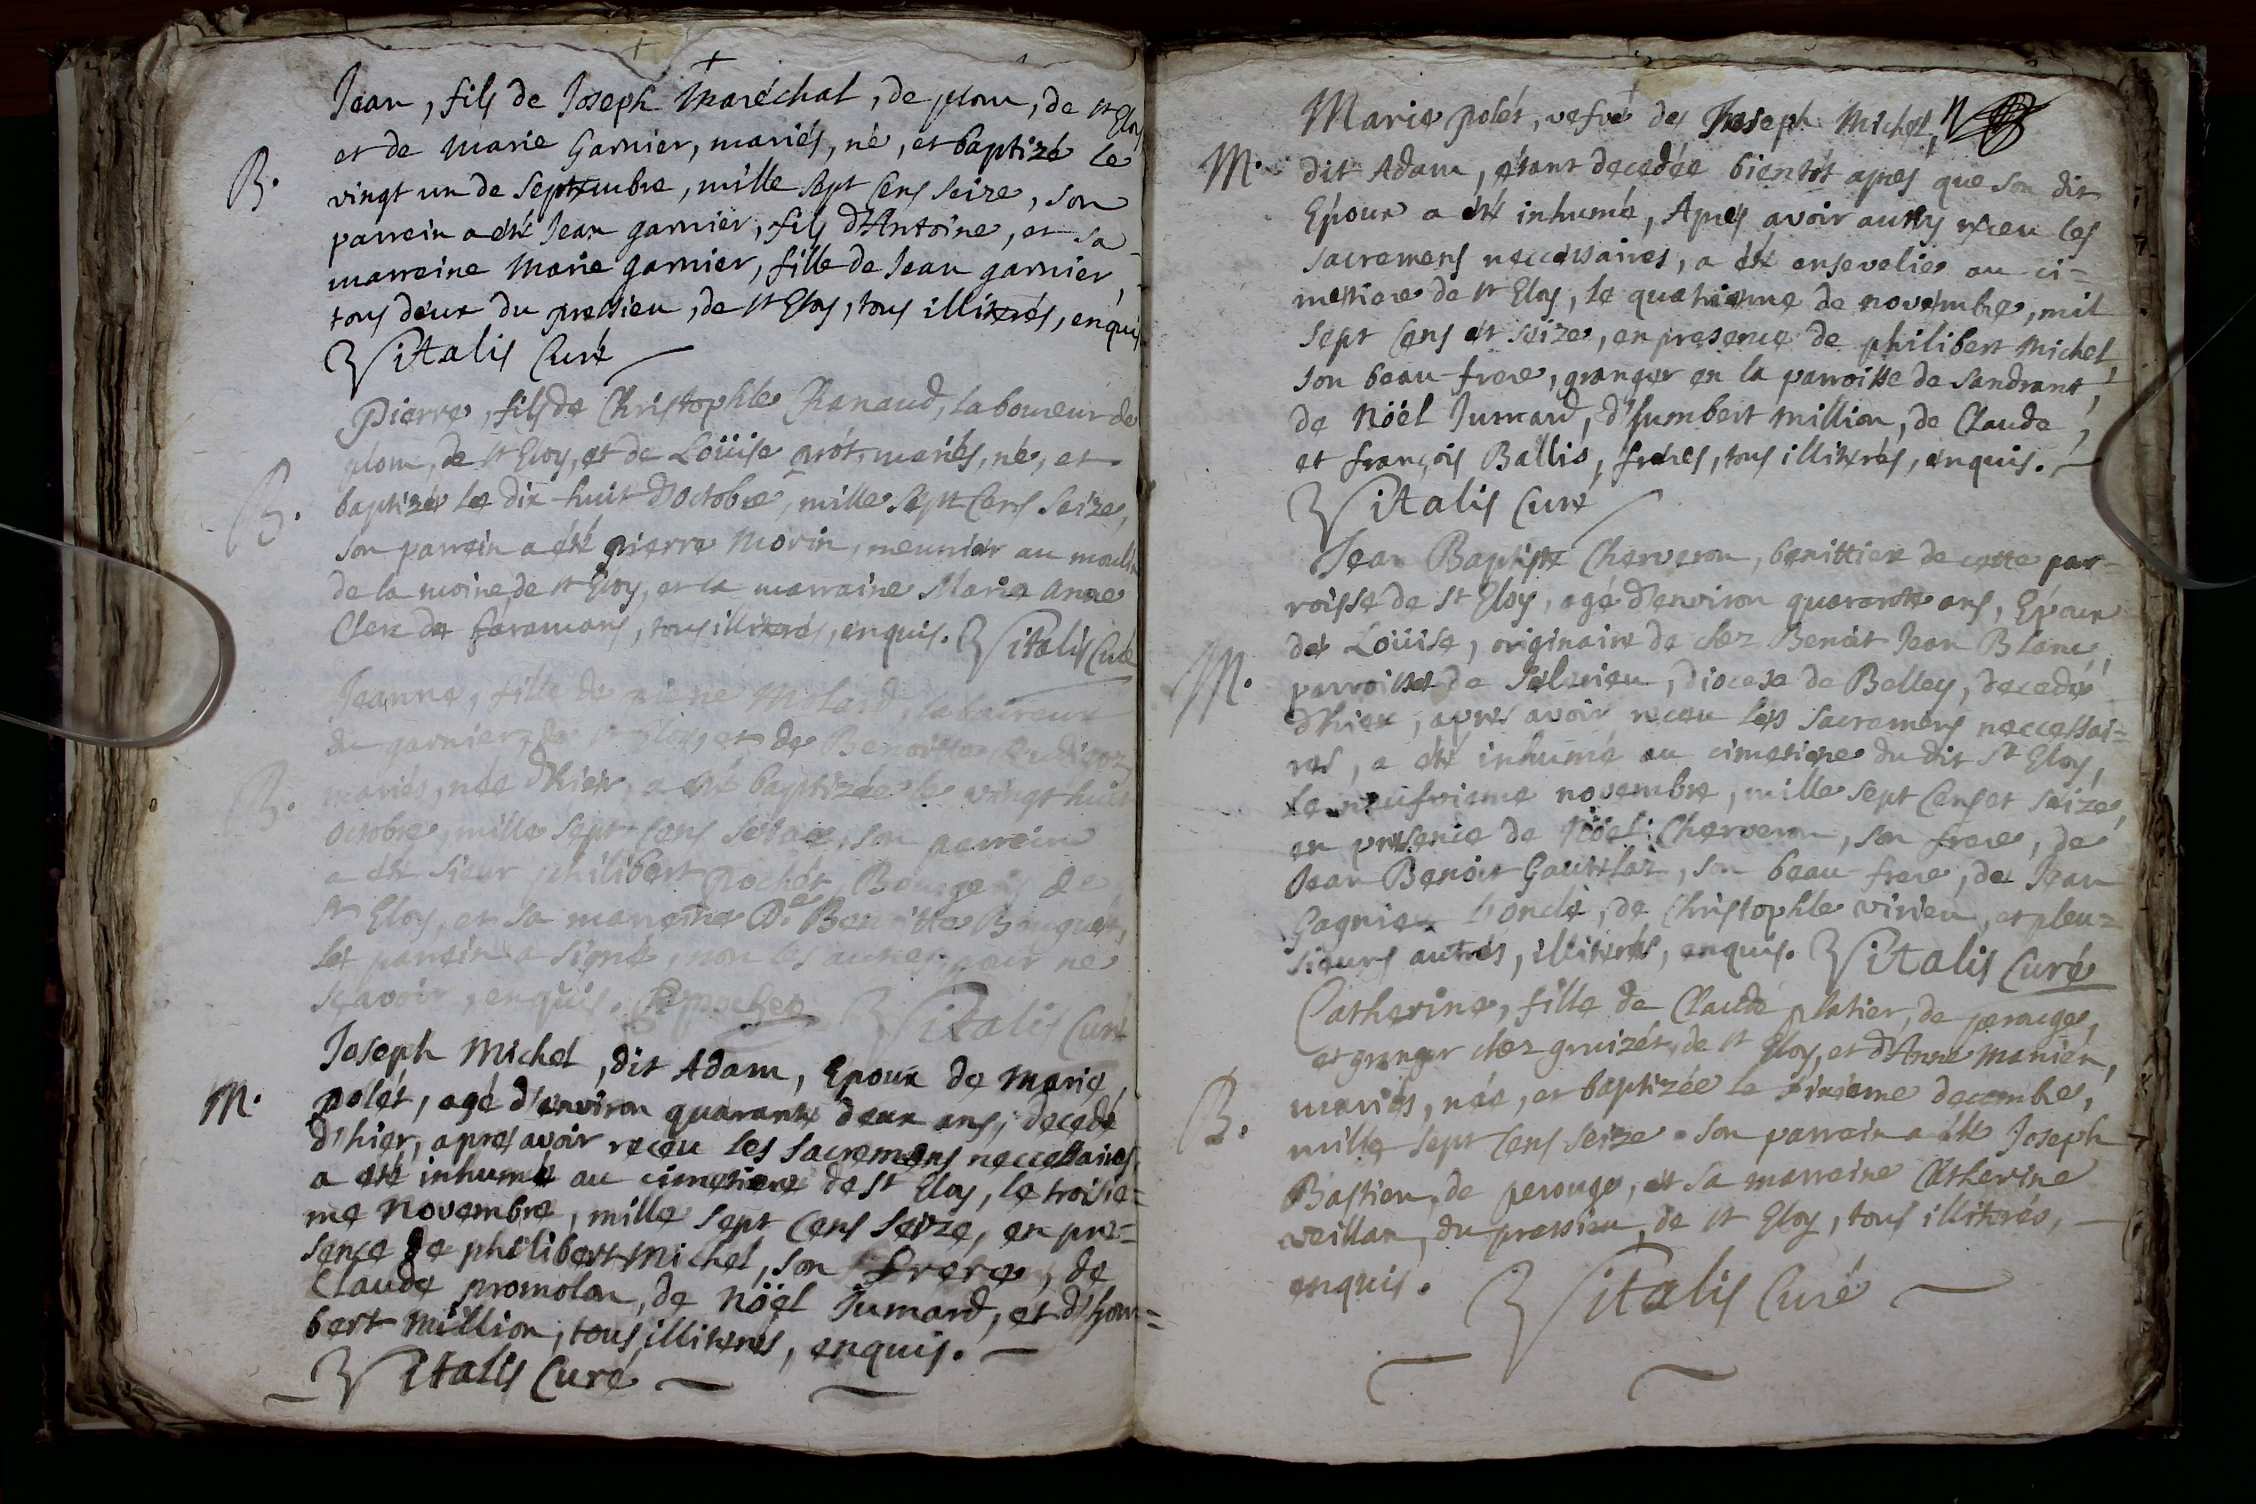 Jean, fils de Joseph Maréchal, de plom, de st Eloy
et de Marie Garnier, mariés, né, et baptizé le
B.
vingt un de septembre, mille sept cens seize, son
parrein a été Jean garnier, fils d'Antoine, et sa
marreine Marie garnier, fille de Jean garnier,
tous deux du pressieu, de st Eloy, tous illiterés, enquis
Vitalis Curé
Pierre, fils de Christophle Ranaud, laboureur de
plom, de st Eloy, et de Loüise prót, mariés, né, et
B.
baptizé le dix huit d'octobre, mille sept cens seize,
son parrein a été pierre Morin, meunier au moulin
de la moine, de st Eloy, et la marraine Marie Anne
Clerc de faramans, tous illiterés, enquis. Vitalis Curé
Jeanne, fille de laboureur
du garnier, de st Eloy, et de Benoitte
B.
mariés, née d'hier, a été baptizée le vingt huit
octobre, mille sept cens seize, son parrein
a été sieur philibert Pochet, Bourgeois de
st Eloy, et sa marreine De. Benoitte
le parrein a signé, non les autres pour ne
sçavoir, enquis. Pochet Vitalis Curé
Joseph Michel, dit Adam, Epoux de Marie
M.
polét, agé d'environ quarante deux ans, decedé
d'hier, apres avoir receu les sacremens neccessaires,
a été inhumé au cimetiere de st Eloy, le troisie=
me Novembre, mille sept cens seize, en pre=
sence de philibert Michel, son frere, de
Claude promolan, de Nöel Jumard, et d'hom=
bert Million, tous illiterés, enquis.
Vitalis Curé
Marie polét, vefve de Joseph Michel,
M.
dit Adam, étant decedée bientôt aprés que son dit
Epoux a été inhumé, Apres avoir aussy receu les
sacremens neccessaires, a été ensevelie au ci=
metiere de st Eloy, le quatrieme de novembre, mil
sept cens et seize, en presence de philibert Michel,
son beau-frere, granger en la parroisse de Sandrans,
de Nöel Jumard, d'humbert Million, de Claude,
et françois Ballio, freres, tous illiterés, enquis.
Vitalis Curé
Jean Baptiste Cherveron, benittier de cette par-
roisse de st Eloy, agé d'environ quarante ans, Epoux
de Loüise, originaire de chez Benoit Jean Blanc,
M.
parroisse de Selurieu, diocese de Belley, decedé
d'hier, apres avoir receu les sacremens neccessai=
res, a été inhumé au cimetiere du dit st Eloy,
le neufvieme novembre, mille sept cens et seize,
en presence de Nöel Cherveron, son frere, de
Jean Benoit son beau frere, de Jean
Gagnieu l'oncle, de Christophle virieu, et pleu=
sieurs autres, illiterés, enquis. Vitalis Curé
Catherine, fille de Claude platier, de perouges,
et granger chez gruizét, de st Eloy, et d'Anne Maniér,
B.
mariés, née, et baptizée le sixieme decembre,
mille sept cens seize. Son parrein a été Joseph
Bastien, de perouge, et sa marreine Catherine
veillan, du pressieu, de st Eloy, tous illiterés,
enquis. Vitalis Curé